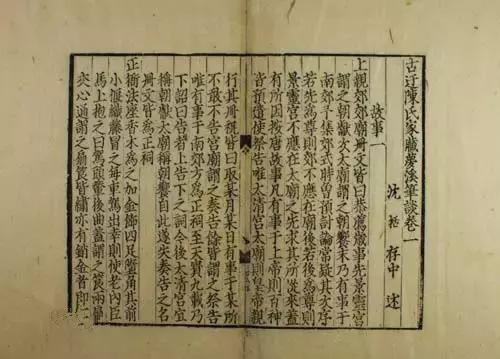 古迂陳氏家藏夢溪筆談卷一
沈括 存中 述
故事一
上親郊郊廟冊文皆曰恭薦歲事先景靈宮
謂之朝獻次太廟謂之朝饗末乃有事于
南郊予集郊式時曽預討論常疑其次序
若先為尊則郊不應在廟後若後為尊則
景靈宮不應在太廟之先求其所從來蓋
有所因按唐故事凡有事于上帝則百神
皆預遣使祭告唯太清宮太廟則皇帝親
行其冊祝皆曰取某月某日有事于某所
不敢不告宮廟謂之奏告餘皆謂之祭告
唯有事于南郊方為正祠至天寶九載乃
下詔曰告者上告下之詞今後太清宮宜
稱朝獻太廟稱朝饗自此遂失奏告之名
冊文皆為正祠
正衙法座香木為之加金飾四足墮角其前
小偃織藤冒之每車駕出幸則使老內臣
馬上抱之曰駕頭輦後曲蓋謂之筤兩扇
夾心通謂之扇筤皆繡亦有銷金者即古